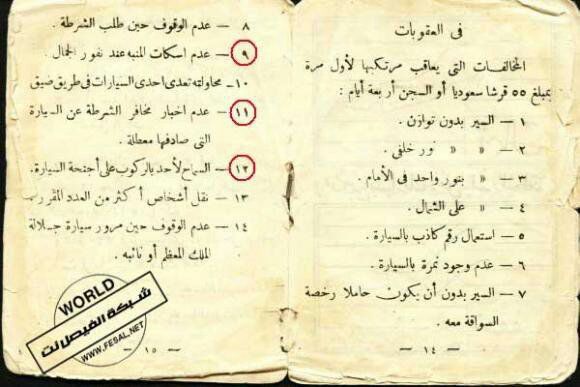 فى العقوبات
المخالفات التى يعاقب مرتكبها لأول مرة
بمبلغ ٥٥ قرشا سعوديا أو السجن أربعة أيام :
١ — السير بدون توازن .
٢ — « « نور خلفى .
٣ — « بنور واحد فى الأمام .
٤ — « على الشمال .
٥ — استعمال رقم كاذب بالسيارة .
٦ — عدم وجود نمرة بالسيارة .
٧ — السير بدون أن يكون حاملا رخصة
السواقة معه .
— ١٤ —
٨ — عدم الوقوف حين طلب الشرطة .
٩ — عدم اسكات المنبه عند نفور الجمال .
١٠ — محاولته تعدى احدى السيارات فى طريق ضيق
١١ — عدم اخبار مخافر الشرطة عن السيارة
التى صادفها معطلة .
١٢ — السماح لأحد بالركوب على أجنحة السيارة .
١٣ — نقل أشخاص أكثر من العدد المقرر .
١٤ — عدم الوقوف حين مرور سيارة جلالة
الملك المعظم أو نائبه .
— ١٥ —
WORLD
شبكة الفيصل نت
WWW.FESAL.NET